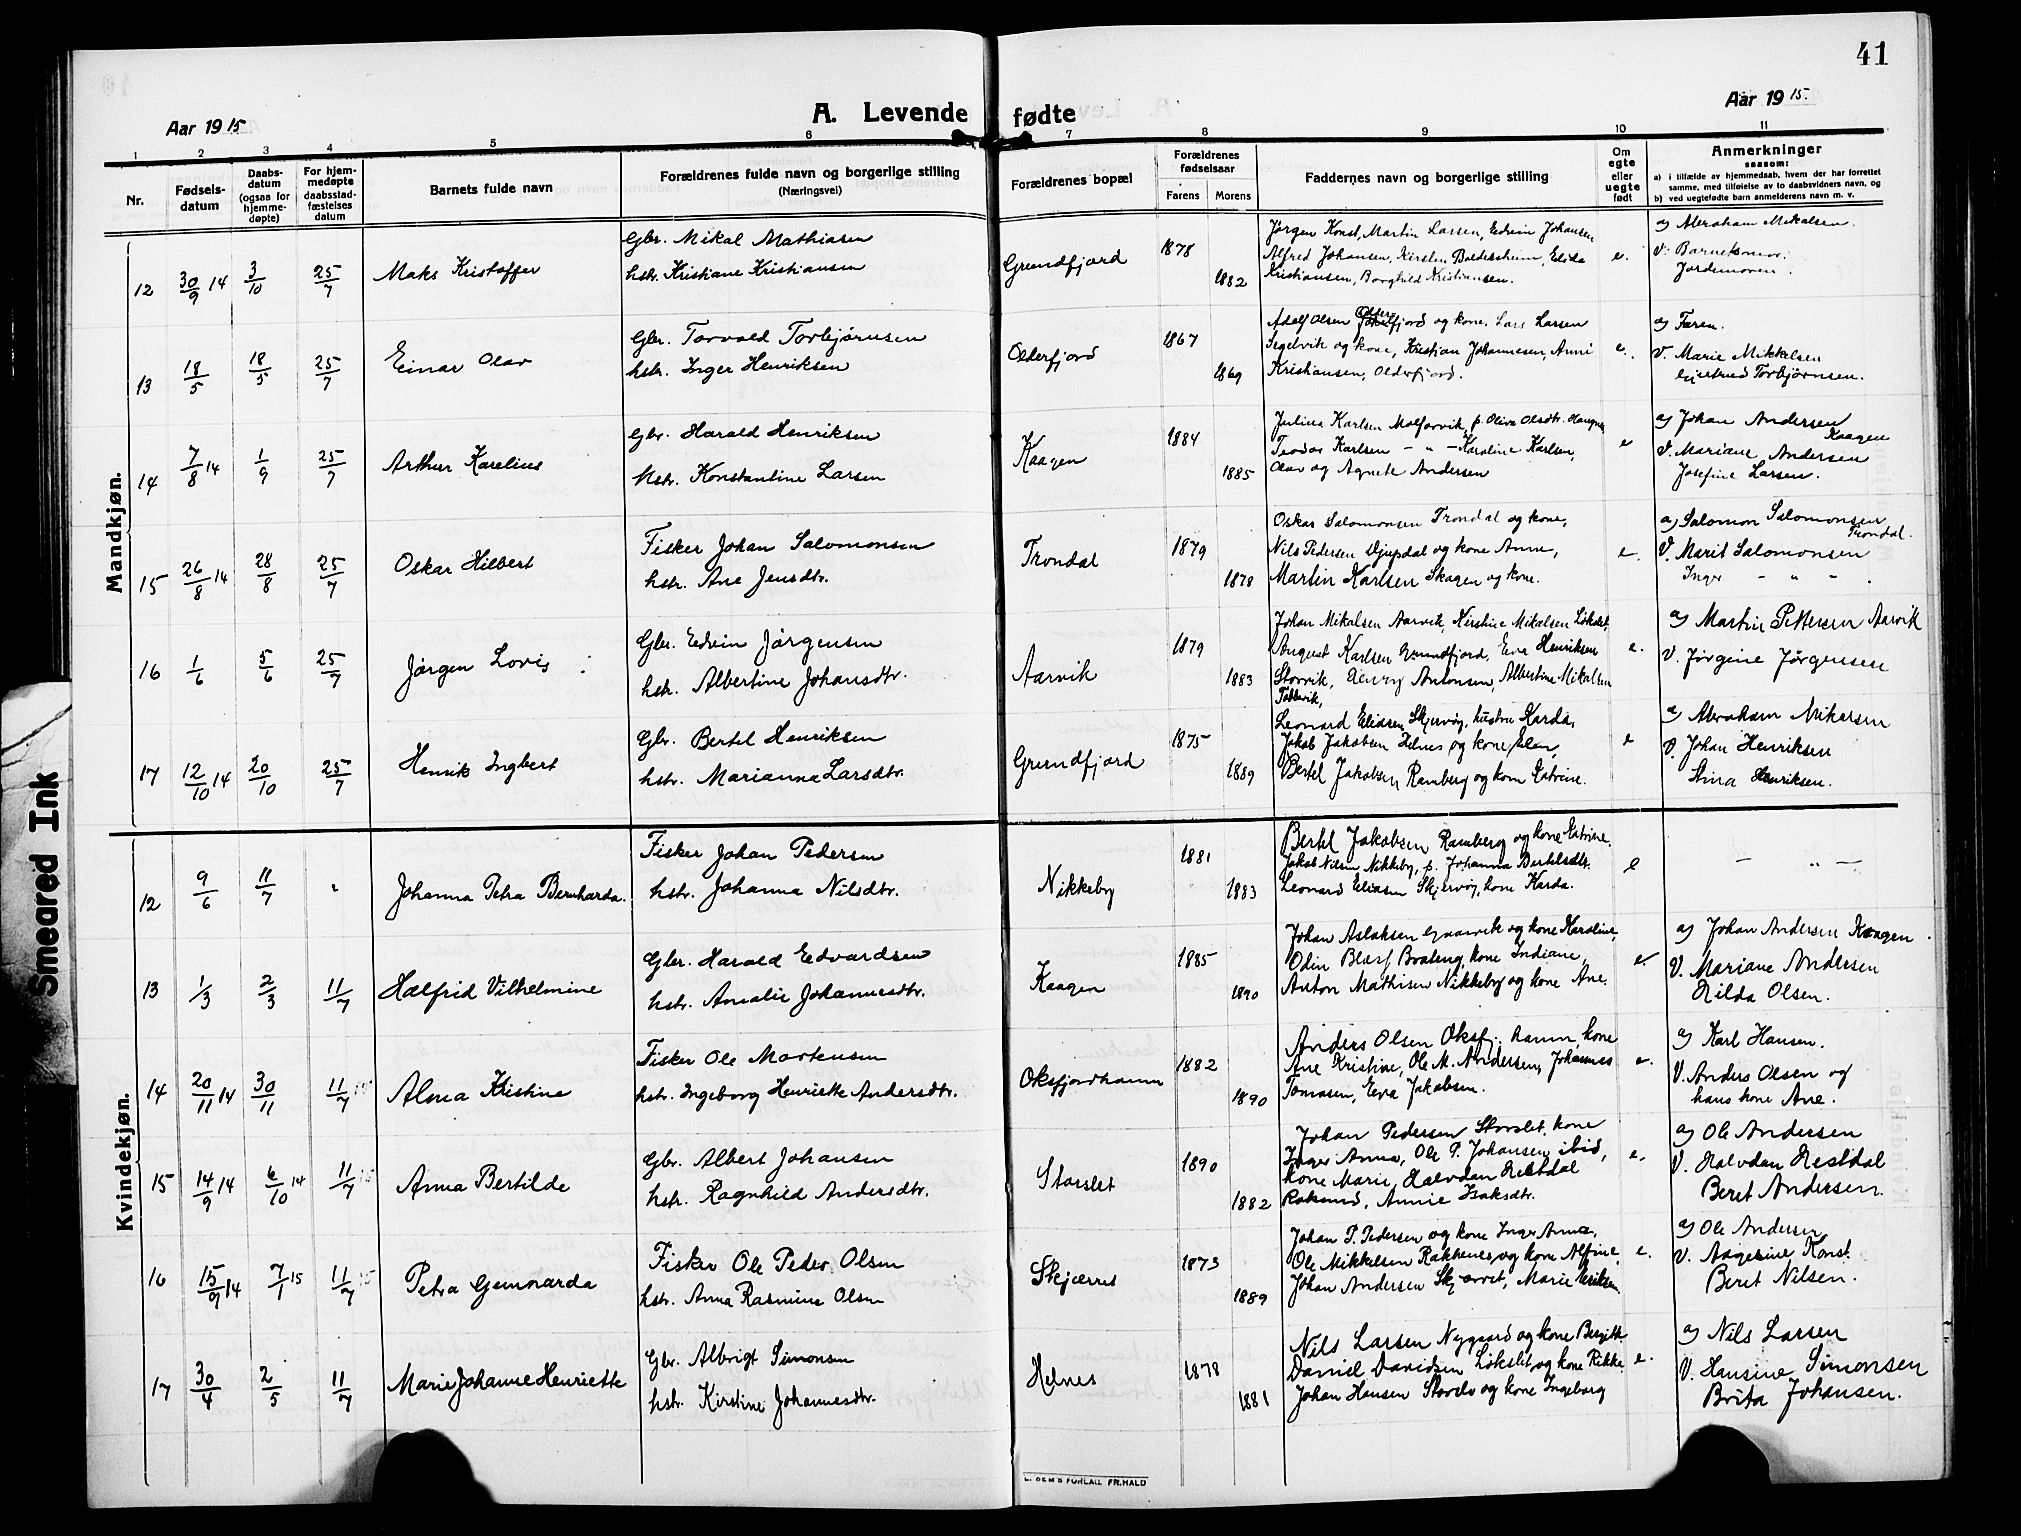 41
Aar 1915
A. Levende fødte
Aar 1915.
1 2 3 4 5 6 7 8 9 10 11
Nr.
Fødsels-
datum
Daabs-
datum
(ogsaa for
hjemme-
døpte)
For hjem-
medøpte
daabsstad-
fæstelses
datum
Barnets fulde navn
Forældrenes fulde navn og borgerlige stilling
(Næringsvei)
Forældrenes bopæl
Forældrenes
fødselsaar
Farens Morens
Faddernes navn og borgerlige stilling
Om
egte
eller
uegte
født
Anmerkninger
saasom:
a) i tilfælde av hjemmedaab, hvem der har forrettet
samme, med tilføielse av to daabsvidners navn, og
b) ved uegtefødte barn anmelderens navn m. v.
Mandkjøn.
12 30/9 14 3/10 25/7 Maks Kristoffer
Gbr. Mikal Mathiasen
hstr. Kristiane Kristiansen
Grundfjord 1878 1882
Jørgen Konst, Martin Larsen, Edvin Johansen
Alfred Johansen, Kirsten Boldevheim, Elida
Kristiansen, Borghild Kristiansen.
e.
a) Abraham Mikalsen.
V. Barnekonen.
Jordemoren.
13 18/5 18/5 25/7 Einar Olav
Gbr. Torvald Torbjørnsen
hstr. Inger Henriksen
Olderfjord 1867 1869
Adolf Olsen Olderfjord og kone, Lars Larsen
Segelvik og kone, Kristian Johannesen, Anni
Kristiansen, Olderfjord.
e.
a) Faren.
V. Marie Mikkelsen
Gjertrud Torbjørnsen.
14 7/8 14 1/9 25/7 Arthur Karelius
Gbr. Harald Henriksen
Hstr. Konstantine Larsen
Kaagen 1884 1885
Julius Karlsen Molforvik, p. Oliva Olsdtr. Hauges
Teodor Karlsen - " - Karoline Karlsen,
Olav og Agnete Andersen
e
a) Johan Andersen
Kaagen
V. Mariane Andersen
Josefine Larsen.
15 26/8 14 28/8 25/7 Oskar Hilbert
Fisker Johan Salomonsen
hstr. Ane Jensdtr.
Trondal 1879 1878
Oskar Salomonsen Trondal og kone,
Nils Pedersen Djupdal og kone Anne,
Martin Karlsen Skagen og kone.
e.
a) Salomon Salomonsen
Trondal.
V. Marit Salomonsen
Inger - " -
16 1/6 5/6 25/7 Jørgen Lovis
Gbr. Edvin Jørgensen
hstr. Albertine Johansdtr.
Aarvik 1879 1883
Johan Mikalsen Aarvik, Kirstine Mikalsen Løkslet,
August Karlsen Grundfjord, Eva Henriksen
Storvik, Henry Antonsen, Albertine Mikalsen
Tabbevik,
e.
a) Martin Pettersen Aarvik
V. Jørgine Jørgensen
17 12/10 14 20/10 25/7 Henrik Ingbert
Gbr. Bertel Henriksen
hstr. Marianna Larsdtr.
Grundfjord 1875 1889
Leonard Eliasen Skjervøy, hustru Karda,
Jakob Jakobsen Helnes og kone Elen,
Bertel Jakobsen Ramberg og kone Katrine.
e
a) Abraham Mikalsen
V. Johan Henriksen
Stina Henriksen.
Kvindekjøn.
12 9/6 11/7 " Johanna Petra Bernharda.
Fisker Johan Pedersen
hstr. Johanna Nilsdtr.
Nikkeby 1881 1883
Bertel Jakobsen Ramberg og kone Katrine.
Jakob Nilsen Nikkeby, p. Johanna Bertelsdtr.
Leonard Eliasen Skjervøy, kone Karda.
e
- " -
13 1/3 2/3 11/7 Halfrid Vilhelmine
Gbr. Harald Edvardsen
hstr. Amalie Johannesdtr.
Kaagen 1885 1890
Johan Aslaksen Gaarvik og kone Karoline,
Odin Blasf Bratung, kone Indiane,
Anton Mathisen Nikkeby og kone Ane.
e.
a) Johan Andersen Kaagen.
V. Mariane Andersen
Hilda Olsen.
14 20/11 14 30/11 11/7 15 Alma Kristine
Fisker Ole Mortensen
hstr. Ingeborg Henriette Andersdtr.
Oksfjordhamn 1882 1890
Anders Olsen Oksfj. hamn, kone
Ane Kristine, Ole M. Andersen, Johannes
Tomasen, Eva Jakobsen.
e.
a) Karl Hansen.
V. Anders Olsen og
hans kone Ane.
15 14/9 14 6/10 14 11/7 15 Anna Bertilde
Gbr. Albert Johansen
hstr. Ragnhild Andersdtr.
Storslet 1890 1882
Johan Pedersen Storslet, kone
Inger Anna, Ole P. Johansen ibid,
kone Marie, Halvdan Restdal
Raksund, Annie Isaksdtr.
e.
a) Ole Andersen
V. Halvdan Restdal
Beret Andersen.
16 15/9 14 7/1 15 11/7 15 Petra Gennarda
Fisker Ole Peder Olsen
hstr. Anna Rasmine Olsen
Skjærvet 1873 1889
Johan P. Pedersen og kone Inger Anna,
Ole Mikkelsen Rakkenes og kone Alfine,
Johan Andersen Skjærvet, Marie Eriksen
e.
a) Ole Andersen
V. Aagesine Konst
Beret Nilsen.
17 30/4 2/5 11/7 Marie Johanne Henriette
Gbr. Albrigt Simonsen
hstr. Kirstine Johannesdtr.
Helnes 1878 1881
Nils Larsen Nygaard og kone Bergitte
Daniel Davidsen Løkslet og kone Rikke
Johan Hansen Stordv og kone Ingeborg
e.
a) Nils Larsen
V. Hansine Simonsen
Brita Johansen.
FORLAG, FR.HALD
Smeared Ink